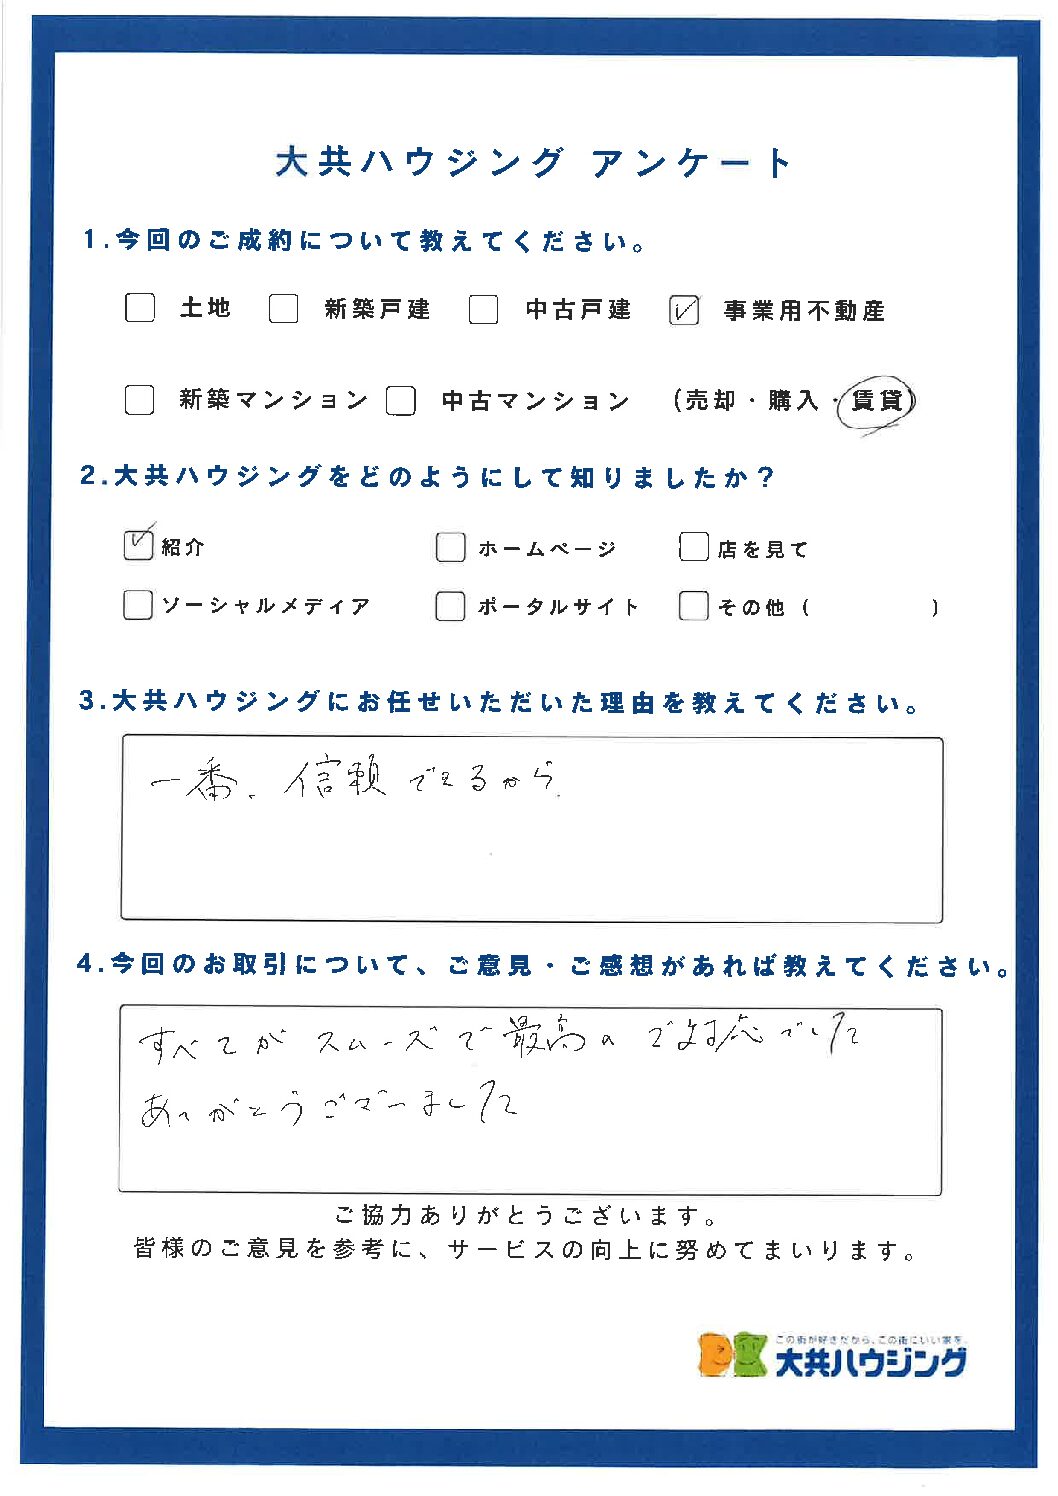 大共ハウジング アンケート
1.今回のご成約について教えてください。
土地 新築戸建 中古戸建 事業用不動産
新築マンション 中古マンション (売却・購入・賃貸)
2.大共ハウジングをどのようにして知りましたか?
紹介 ホームページ 店を見て
ソーシャルメディア ポータルサイト その他 ( )
3.大共ハウジングにお任せいただいた理由を教えてください。
一番、信頼できるから
4.今回のお取引について、ご意見・ご感想があれば教えてください。
すべてがスムーズで最高のご対応でした
ありがとうございました
ご協力ありがとうございます。
皆様のご意見を参考に、サービスの向上に努めてまいります。
この街が好きだから、この街にいい家を。
大共ハウジング